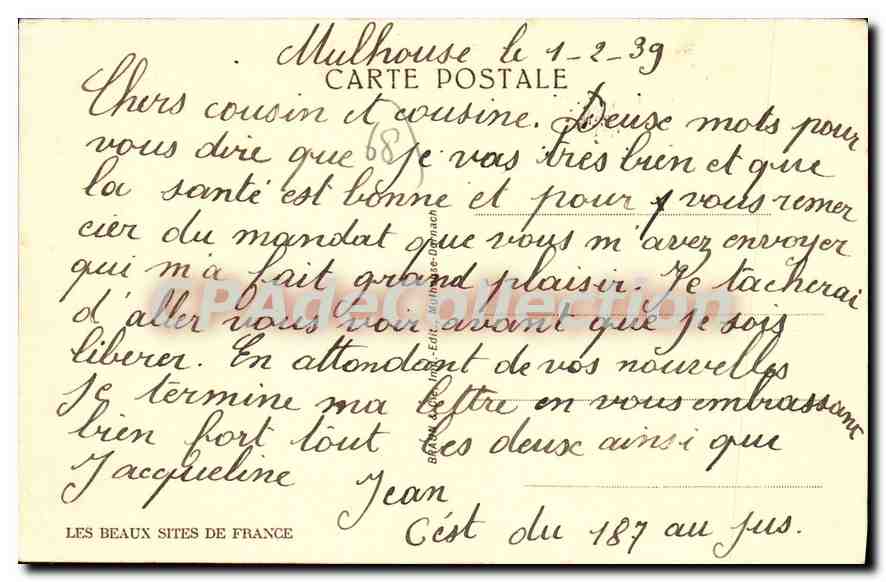 Mulhouse le 1-2-39
CARTE POSTALE
Chers cousin et cousine. Deux mots pour
68
vous dire que je vas très bien et que
la santé est bonne et pour vous remer
cier du mandat que vous m'avez envoyer
qui m'a fait grand plaisir. Je tacherai
CPAdeCollection
d'aller vous voir avant que je sois
liberer. En attondant de vos nouvelles
Je termine ma lettre en vous embrassant
bien fort tout les deux ainsi que
Jacqueline
Jean
C'est du 187 au jus.
BRAUN & Cie, Imp.-Edit., Mulhouse-Dornach
LES BEAUX SITES DE FRANCE